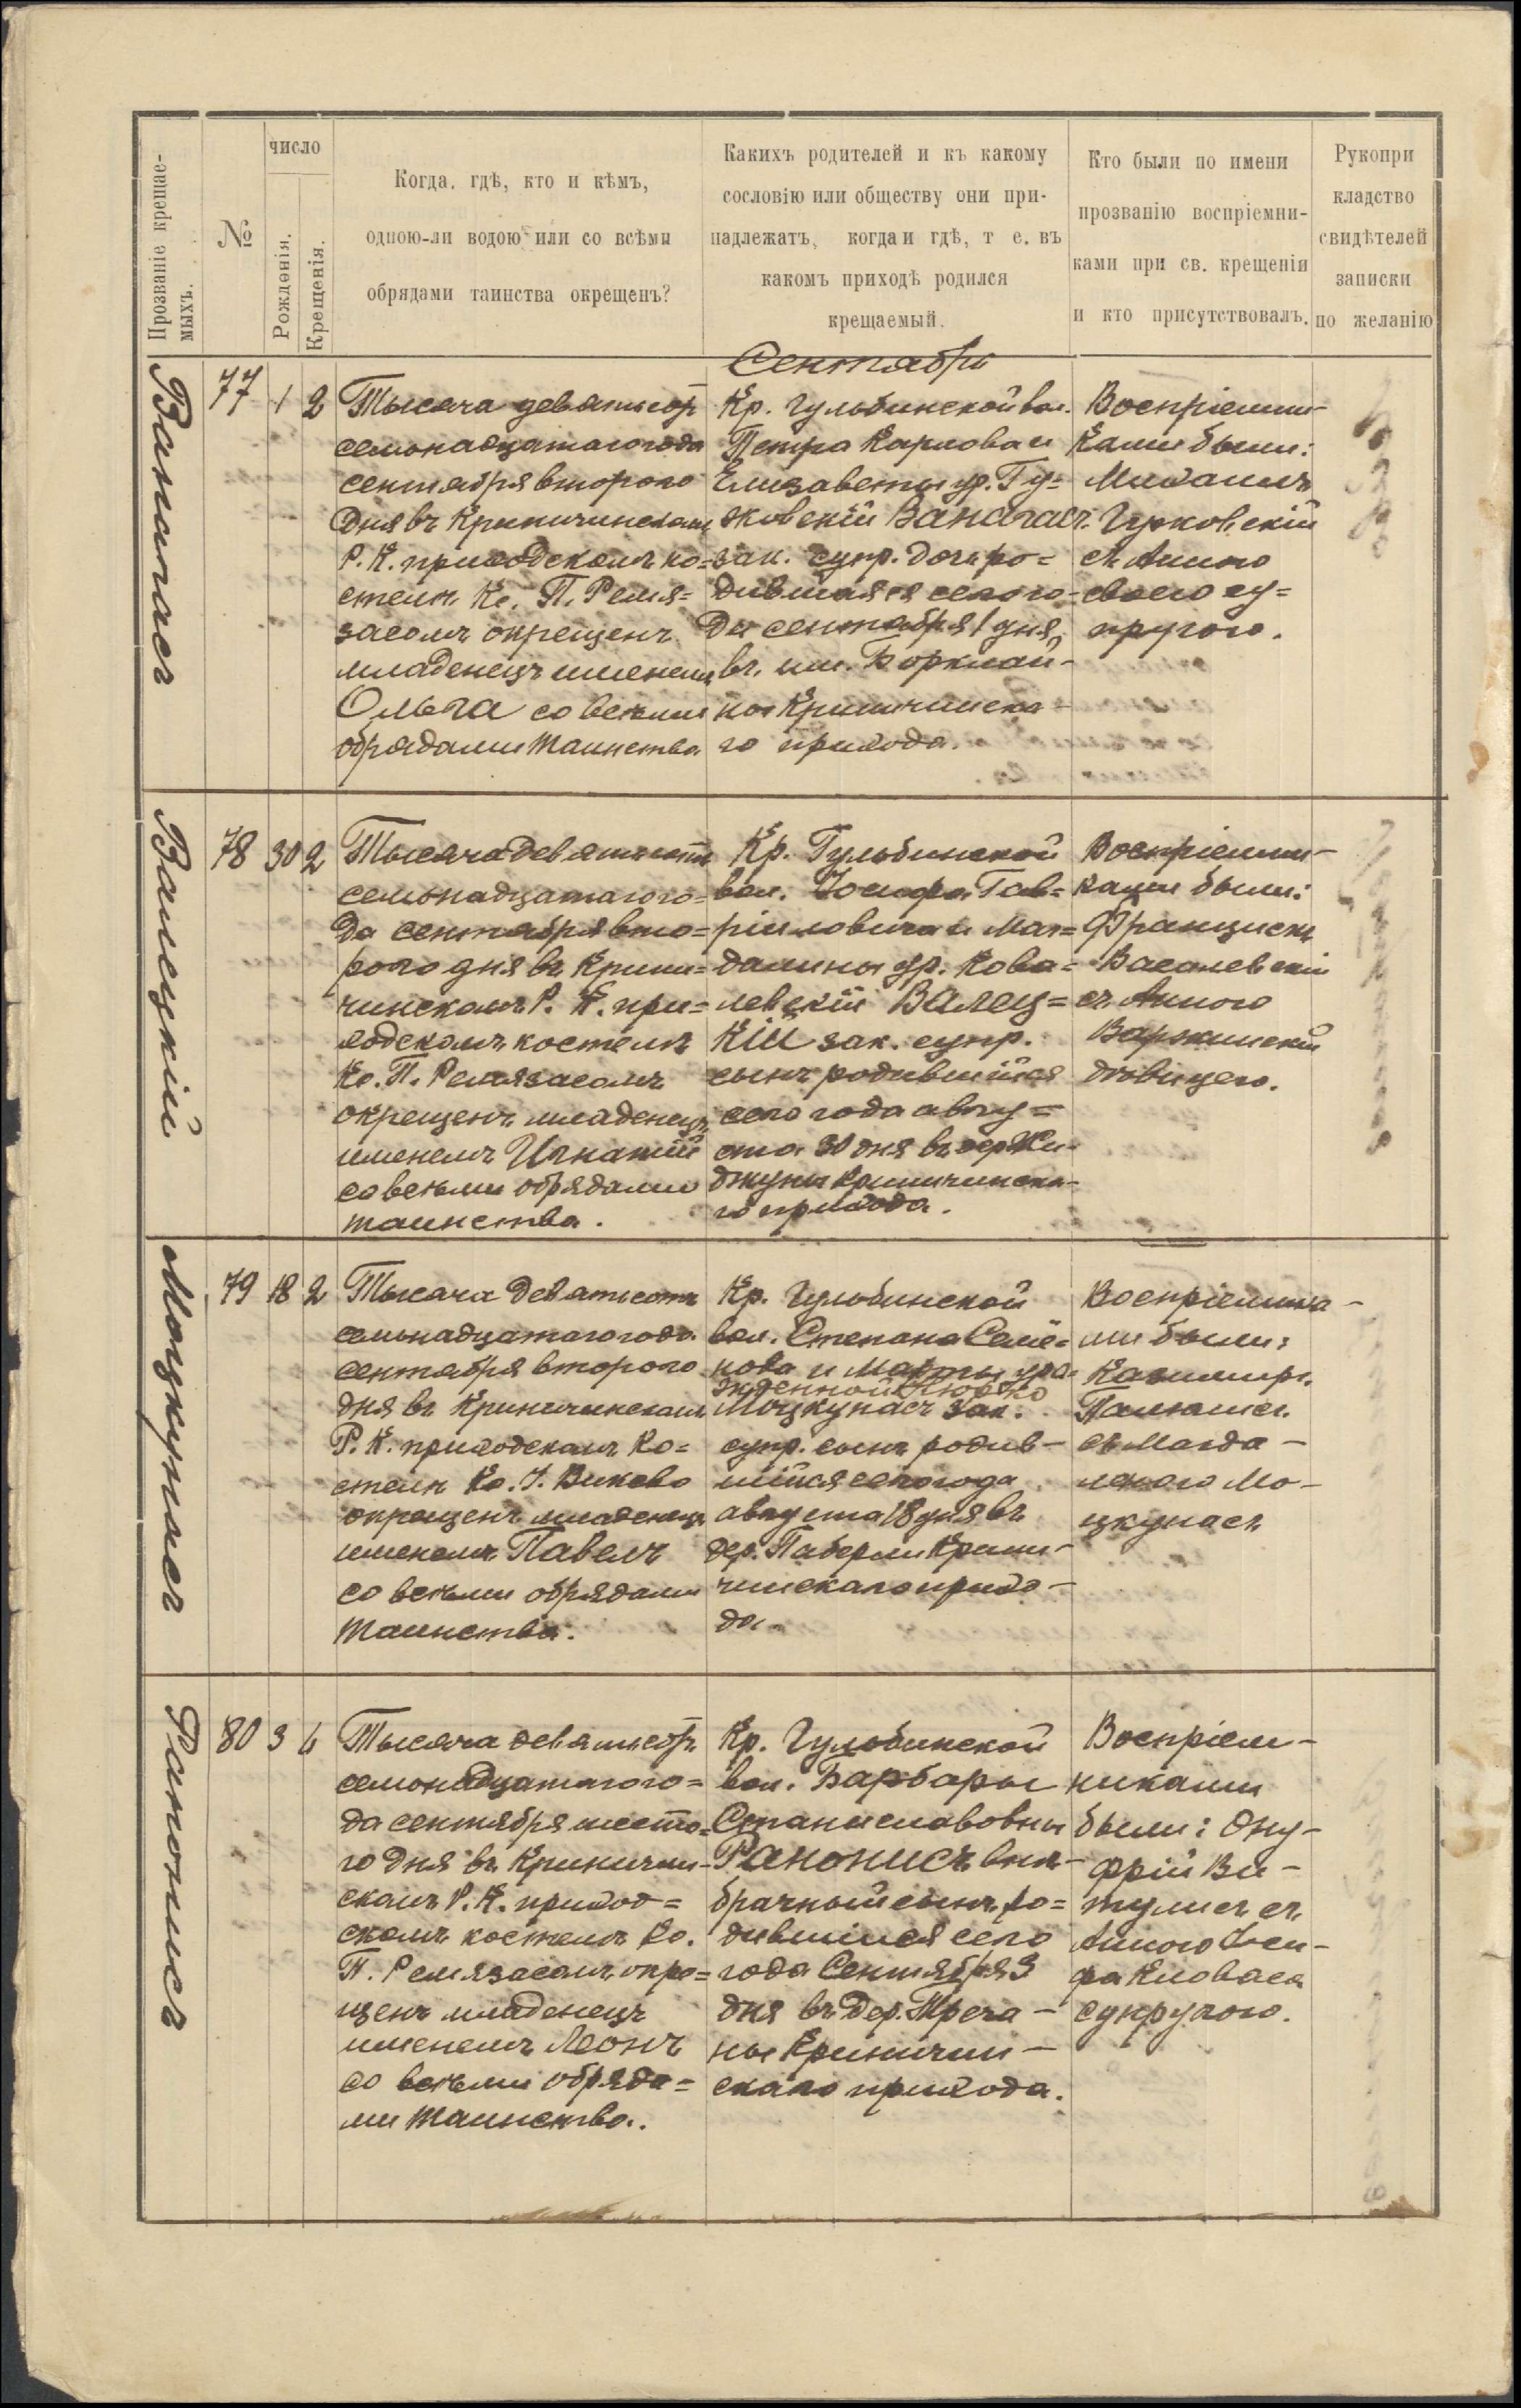 Прозваніе крещае-
мыхъ.
№
число
Рожденія.
Крещенія.
Когда, гдѣ, кто и кѣмъ,
одною-ли водою или со всѣми
обрядами таинства окрещенъ?
Какихъ родителей и къ какому
сословію или обществу они при-
надлежатъ, когда и гдѣ, т е. въ
какомъ приходѣ родился
крещаемый.
Кто были по имени
прозванію воспріемни-
ками при св. крещеніи
и кто присутствовалъ.
Рукопри
кладство
свидѣтелей
записки
по желанію
Сентябрь
Ванагасъ
77
1
2
Тысяча девятьсотъ
семьнадцатаго года
сентября второго
дня въ Криничинскомъ
Р. К. приходскомъ ко=
стелѣ Кс. П. Ремя=
засомъ окрещенъ
младенецъ именемъ
Ольга со всѣми
обрядами Таинства
Кр. Гульбинской вол.
Петра Карлова и
Елизаветы ур. Гу=
жовскій Ванагасъ
зак. супр. дочь ро=
дившаяся сего го=
да сентября 1 дня
въ им. Борклай-
ны Криничинска-
го прихода.
Воспріемни-
ками были:
Михаилъ
Гужовскій
съ Анною
своею су=
пругою.
Валецкій
78
30
2
Тысяча девятьсотъ
семьнадцатаго го=
да сентября вто=
рого дня въ Крини=
чинскомъ Р. К. при=
ходскомъ костелѣ
Кс. П. Ремязасомъ
окрещенъ младенецъ
именемъ Игнатій
со всѣми обрядами
таинства.
Кр. Гульбинской
вол. Іосифа Гав=
ріиловича и Маг=
далины ур. Кова=
левскій Валец=
кій зак. супр.
сынъ родившійся
сего года авгу=
ста 30 дня въ дер.
Криничинска-
го прихода.
Воспріемни-
ками были:
Францискъ
Васалевскій
съ Анною
дѣвицею.
Моцкунасъ
79
18
2
Тысяча девятьсотъ
семьнадцатаго года
сентября второго
дня въ Криничинскомъ
Р. К. приходскомъ ко=
стелѣ Кс. І.
окрещенъ младенецъ
именемъ Павелъ
со всѣми обрядами
Таинства.
Кр. Гульбинской
вол. Степана Семе=
нова и Марты уро=
жденной
Моцкунасъ зак.
супр. сынъ родив-
шійся сего года
августа 18 дня въ
дер. Паберли Крини-
чинскаго прихо-
да.
Воспріемника-
ми были:
Казимиръ
съ Магда-
леною Мо-
цкунасъ
Рапонисъ
80
3
6
Тысяча девятьсотъ
семьнадцатаго го=
да сентября шесто=
го дня въ Криничин-
скомъ Р. К. приход=
скомъ костелѣ Кс.
П. Ремязасомъ окре=
щенъ младенецъ
именемъ Леонъ
со всѣми обряда=
ми Таинства.
Кр. Гульбинской
вол. Барбары
Станиславовны
Рапонисъ внѣ-
брачный сынъ ро=
дившійся сего
года Сентября 3
дня въ дер. Треча-
ны Криничин-
скаго прихода.
Воспріем-
никами
были: Ону-
фрій Ви-
тулисъ съ
Анною Іоси-
фа
супругою.